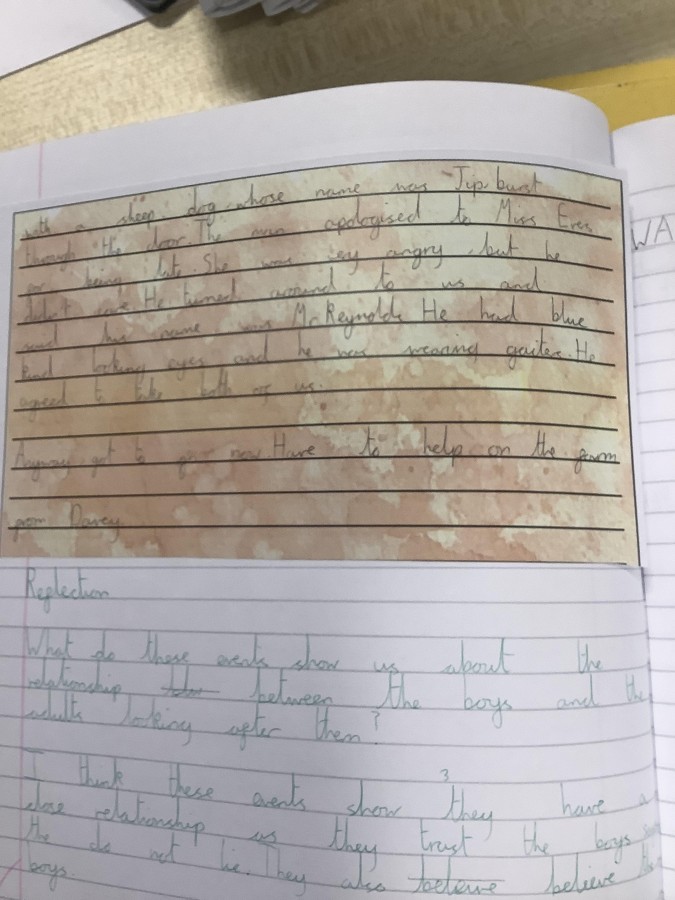 with a sheep dog whose name was Jip burst
through the door. The man apologised to Miss Eves
or being late. She was ey angry but he
didn't care. He turned around to us and
said his name was Mr Reynolds He had blue
kind looking eyes and he was wearing gaiters. He
agreed to take both of us.
Anyway got to go now. Have to help on the farm
from Davey
WA
Reflection
What do these events show us about the
relationship between the boys and the
adults looking after them?
I think these events show they have a
3
close relationship as they trust the boys
the do not lie. They also believe believe the
boys.